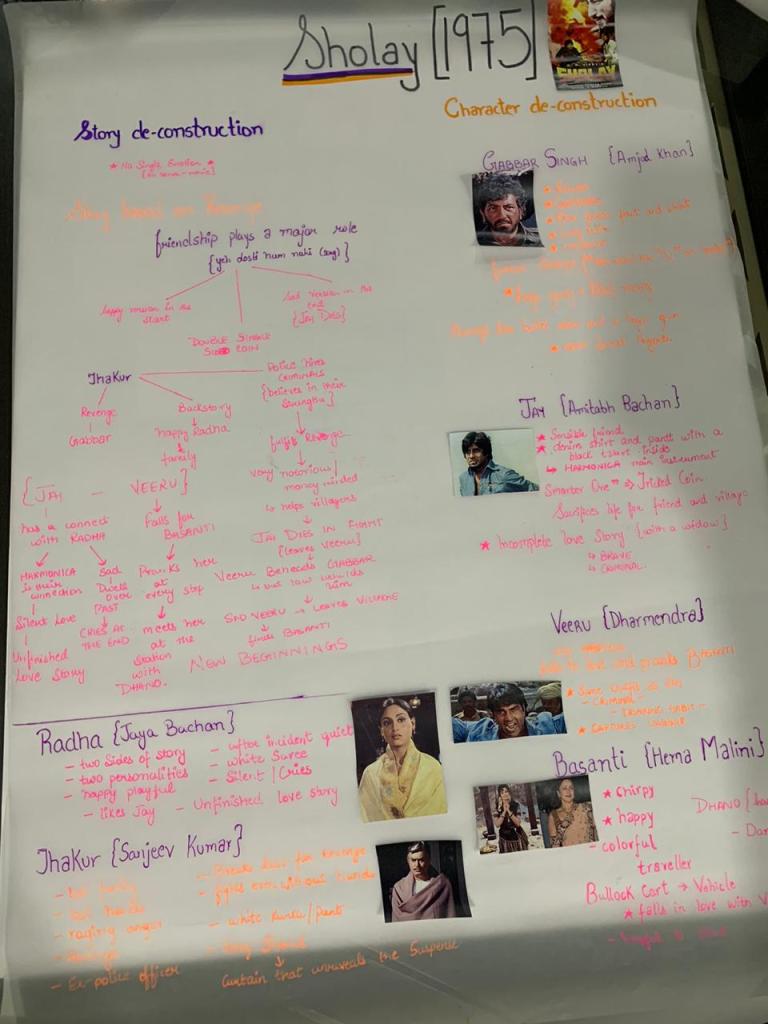 Sholay [1975]
SHOLAY
Story de-construction
★ No Single Emotion ★
Story based on Revenge
friendship plays a major role
{yeh dosti hum nahi (song)}
happy version in the start
DOUBLE SINGLE
SIDED COIN
Sad version in the
end
{JAY DIES}
Thakur
Revenge
Gabbar
Backstory
happy Radha
family
Police hires
CRIMINALS
{believes in their
Strengths}
fulfils Revenge
very notorious/
money minded
↳ helps villagers
JAY DIES IN FIGHT
{leaves veeru}
Veeru Beheads GABBAR
↳ but law upholds
him
SAD VEERU → LEAVES VILLAGE
finds BASANTI
NEW BEGINNINGS
{JAY - VEERU}
has a connect
with RADHA
HARMONICA
is their
connection
Silent Love
Unfinished
Love Story
Sad
Dwell
over
PAST
CRIES AT
THE END
falls for
BASANTI
Pranks her
at
every step
meets her
at the
station
with
DHANO.
Character de-construction
GABBAR SINGH {Amjad Khan}
JAY {Amitabh Bachan}
★ Sensible friend
★ denim shirt and pants with a
black tshirt inside
↳ HARMONICA main instrument
Smarter One → Tricked Coin
Sacrifices life for friend and village
★ Incomplete love Story {with a widow}
↳ BRAVE
↳ CRIMINAL.
VEERU {Dharmendra}
love and pranks Basanti
- CRIMINAL -
Radha {Jaya Bachan}
- two sides of story
- two personalities
- happy playful
- likes Jay
- after incident quiet
- white Saree
- Silent / Cries
- Unfinished love story
Basanti {Hema Malini}
★ chirpy
★ happy
- colorful
traveller
DHANO
Bullock Cart → Vehicle
★ falls in love with V
Thakur {Sanjeev Kumar}
- lost family
- lost hands
- raging anger
- Revenge
- Ex-police officer
- Breaks law for revenge
- fights even without hands
- white Kurta/pant
Curtain that unravels the Suspense